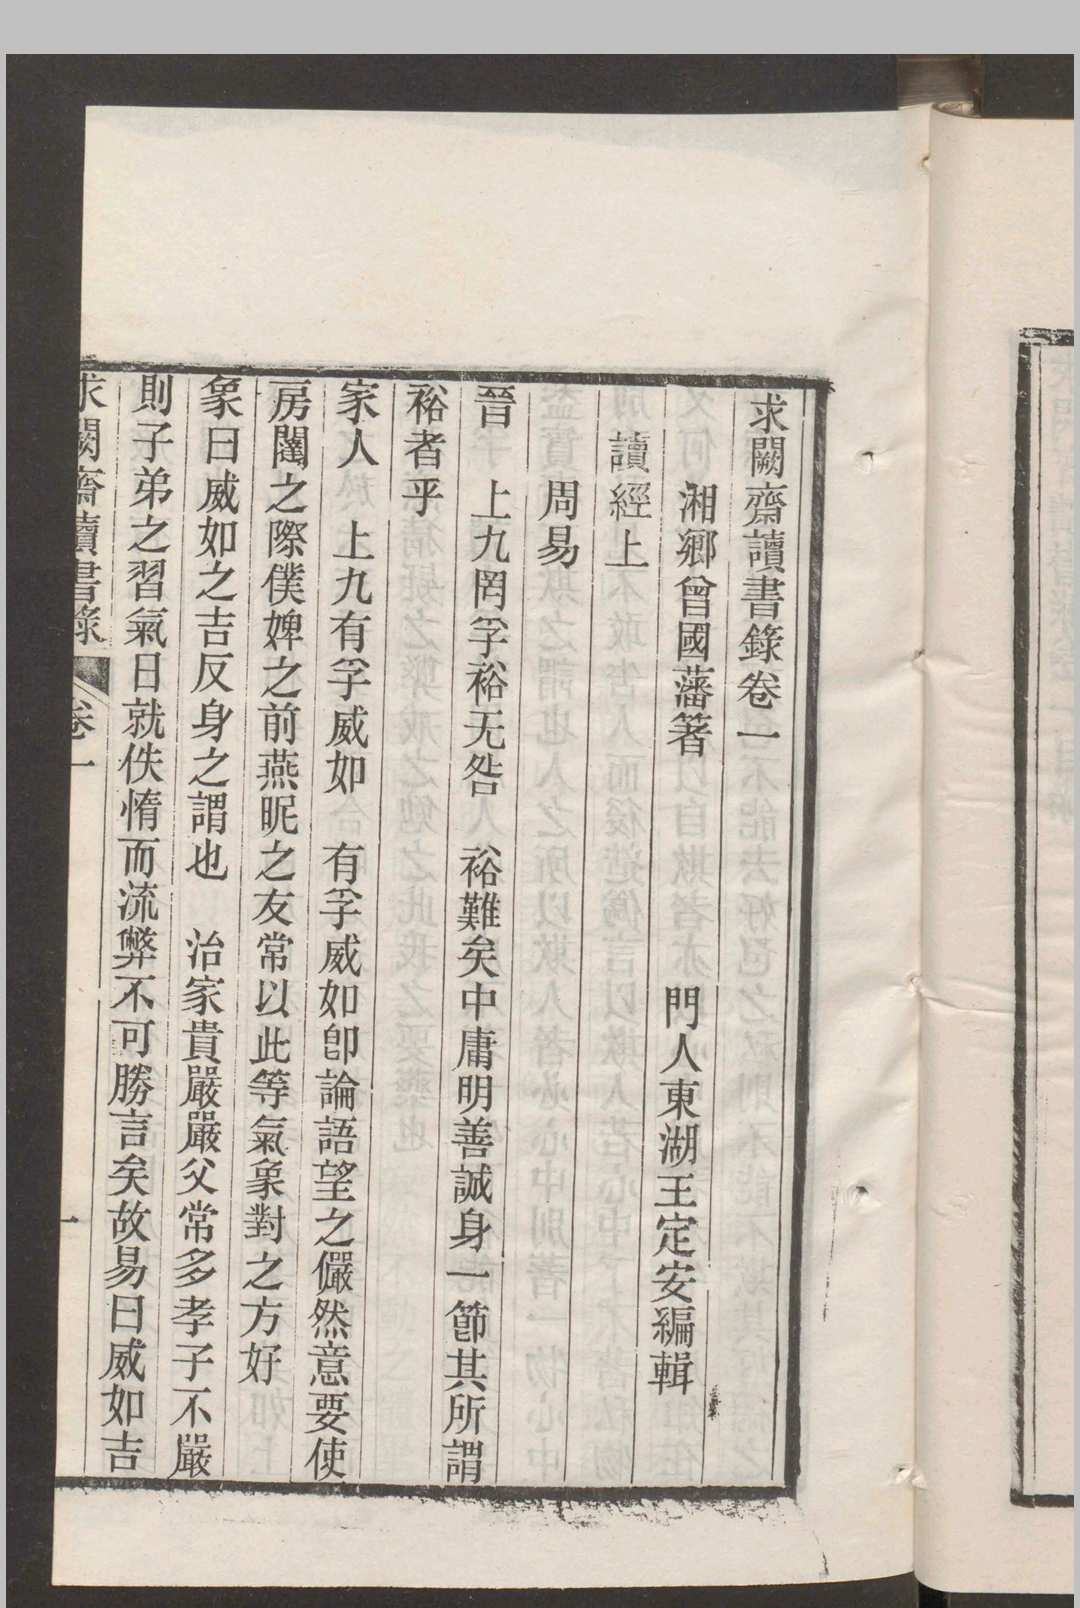 求闕齋讀書錄卷一
湘鄉曾國藩著　門人東湖王定安編輯
讀經上
周易
晉　上九罔孚裕无咎　裕難矣中庸明善誠身一節其所謂
裕者乎
家人　上九有孚威如　有孚威如卽論語望之儼然意要使
房闥之際僕婢之前燕昵之友常以此等氣象對之方好
象曰威如之吉反身之謂也　治家貴嚴嚴父常多孝子不嚴
則子弟之習氣日就佚惰而流弊不可勝言矣故易曰威如吉
求闕齋讀書錄　卷一　一